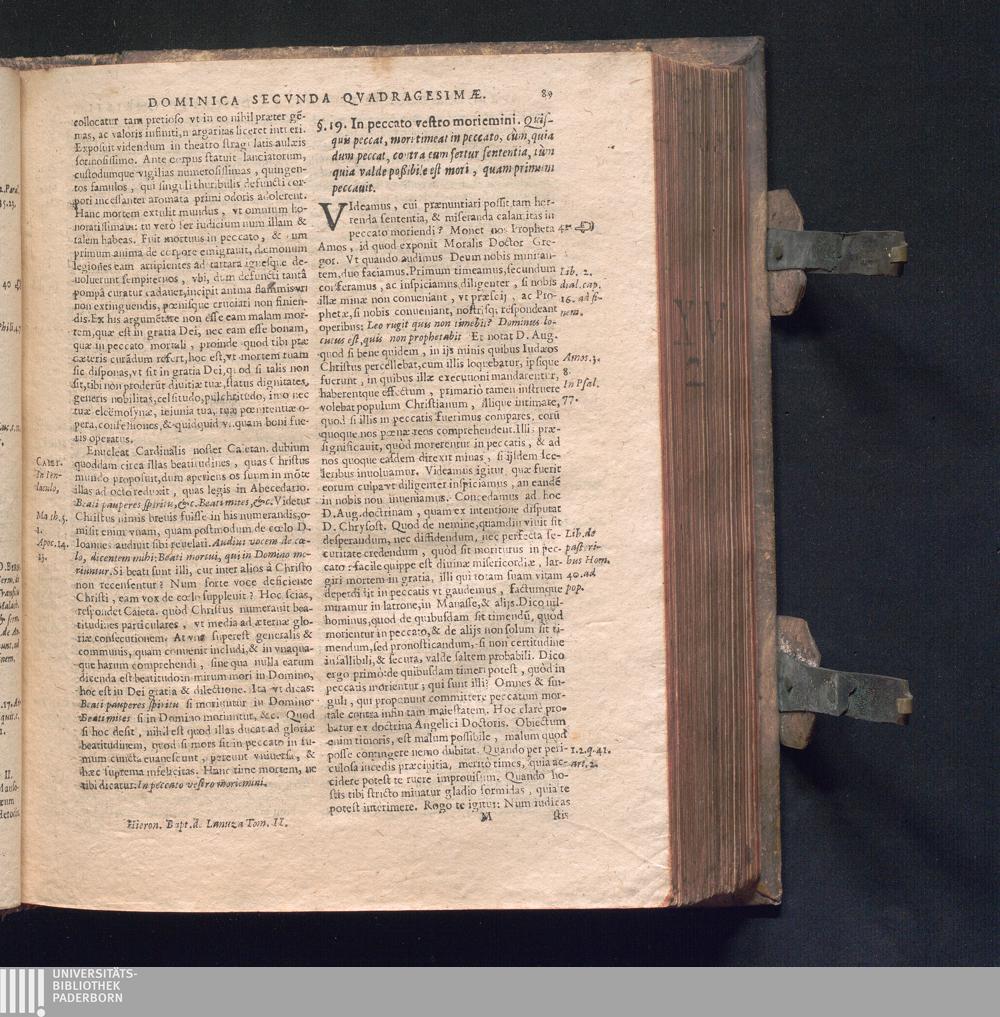 DOMINICA SECVNDA QVADRAGESIMÆ. 89
collocatur tam pretioso vt in eo nihil præter gē-
mas, ac valoris infiniti, margaritas liceret intueri.
Exposuit videndum in theatro stragulatis aulæis
formosissimo. Ante corpus statuit lanciatorum,
custodumque vigilias numerosissimas, quingen-
tos famulos, qui singuli thuribulis defuncti cor-
pori incessanter aromata primi odoris adolerent.
Hanc mortem extulit mundus, vt omnium ho-
noratissimam: tu vero fer iudicium num illam &
talem habeas. Fuit mortuus in peccato, & cum
primum anima de corpore emigrauit, dæmonum
legiones eam accipientes ad tartara ignesque de-
uoluerunt sempiternos, vbi, dum defuncti tantâ
pompâ curatur cadauer, incipit anima flammis vri
non extinguendis, pœnisque cruciari non finien-
dis. Ex his argumētare non esse eam malam mor-
tem, quæ est in gratia Dei, nec eam esse bonam,
quæ in peccato mortali, proinde quod tibi præ
cæteris curādum refert, hoc est, vt mortem tuam
sic disponas, vt sit in gratia Dei, quod si talis non
sit, tibi non proderūt diuitiæ tuæ, status dignitates,
generis nobilitas, celsitudo, pulchritudo, imo nec
tuæ eleëmosynæ, ieiunia tua, tuæ pœnitentiæ o-
pera, confessiones, & quidquid vnquam boni fue-
ris operatus.
Enucleat Cardinalis noster Caietan. dubium
quoddam circa illas beatitudines, quas Christus
mundo proposuit, dum aperiens os suum in mōte
illas ad octo reduxit, quas legis in Abecedario.
Beati pauperes spiritu, &c. Beati mites, &c. Videtur
Christus nimis breuis fuisse in his numerandis, o-
misit enim vnam, quam postmodum de cœlo D.
Ioannes audiuit sibi reuelari. Audiui vocem de cœ-
lo, dicentem mihi: Beati mortui, qui in Domino mo-
riuntur. Si beati sunt illi, cur inter alios à Christo
non recensentur? Num forte voce deficiente
Christi, eam vox de cœlo suppleuit? Hoc scias,
respondet Caieta. quòd Christus numerauit bea-
titudines particulares, vt media ad æternæ glo-
riæ consecutionem. At vna superest generalis &
communis, quam conuenit includi, & in vnaqua-
que harum comprehendi, sine qua nulla earum
dicenda est beatitudo: nimirum mori in Domino,
hoc est in Dei gratia & dilectione. Ita vt dicas:
Beati pauperes spiritu si moriuntur in Domino
Beati mites si in Domino moriuntur, &c. Quod
si hoc desit, nihil est quod illas ducat ad gloriæ
beatitudinem, quod si mors sit in peccato in fu-
mum cuncta euanescunt, pereunt vniuersa, &
hæc suprema infelicitas. Hanc time mortem, ne
tibi dicatur: In peccato vestro moriemini.
Hieron. Bapt. de Lanuza Tom. II.
CAIET.
In Ien-
taculo,
Math. 5.
1.
Apoc. 14.
13.
§. 19. In peccato vestro moriemini. Quis-
quis peccat, mori timeat in peccato, cùm, quia
dum peccat, contra eum fertur sententia, tùm
quia valde possibile est mori, quam primùm
peccauit.
VIdeamus, cui prænuntiari possit tam hor-
renda sententia, & miseranda calamitas in
peccato moriendi? Monet nos Propheta
Amos, id quod exponit Moralis Doctor Gre-
gor. Vt quando audimus Deum nobis minitan-
tem, duo faciamus. Primum timeamus, secundum
conferamus, ac inspiciamus diligenter, si nobis
illæ minæ non conueniant, vt præscij, ac Pro-
phetæ, si nobis conueniant, nostrisq; respondeant
operibus: Leo rugit quis non timebit? Dominus lo-
cutus est, quis non prophetabit Et notat D. Aug.
quod si bene quidem, in ijs minis quibus Iudæos
Christus percellebat, cum illis loquebatur, ipsique
fuerunt, in quibus illæ executioni mandarentur,
haberentque effectum, primariò tamen instruere
volebat populum Christianum, illique intimare,
quod si illis in peccatis fuerimus compares, eorū
quoque nos pœnæ reos comprehendent. Illi præ-
significauit, quòd morerentur in peccatis, & ad
nos quoque easdem direxit minas, si ijsdem sce-
leribus inuoluamur. Videamus igitur quæ fuerit
eorum culpa vt diligenter inspiciamus, an eandē
in nobis non inueniamus. Concedamus ad hoc
D. Aug. doctrinam, quam ex intentione disputat
D. Chrysost. Quod de nemine, quamdiu viuit sit
desperandum, nec diffidendum, nec perfecta se-
curitate credendum, quòd sit moriturus in pec-
cato: facile quippe est diuinæ misericordiæ, lar-
giri mortem in gratia, illi qui totam suam vitam
deperdidit in peccatis vt gaudemus, factumque
miramur in latrone, in Manasse, & alijs. Dico nil-
hominus, quod de quibusdam sit timendū, quòd
morientur in peccato, & de alijs non solum sit ti-
mendum, sed pronosticandum, si non certitudine
infallibili, & secura, valde saltem probabili. Dico
ergo primò: de quibusdam timeri potest, quòd in
peccatis morientur; qui sunt illi? Omnes & sin-
guli, qui proponunt committere peccatum mor-
tale contra infinitam maiestatem. Hoc clarè pro-
batur ex doctrina Angelici Doctoris. Obiectum
enim timoris, est malum possibile, malum quod
posse contingere nemo dubitat. Quando per peri-
culosa incedis præcipitia, meritò times, quia ac-
cidere potest te ruere improuisum. Quando ho-
stis tibi stricto minatur gladio formidas, quia te
potest interimere. Rogo te igitur: Num iudicas
M stis
41
Lib. 2.
dial. cap.
16. ad fi-
nem.
Amos. 3.
8.
In Psal.
77.
Lib. de
past. ri-
bus Hom.
40. ad
pop.
1. 2. q. 41.
art. 2.
2. Paral
40
Philis. 47
II.
YV
2
UNIVERSITÄTS-
BIBLIOTHEK
PADERBORN